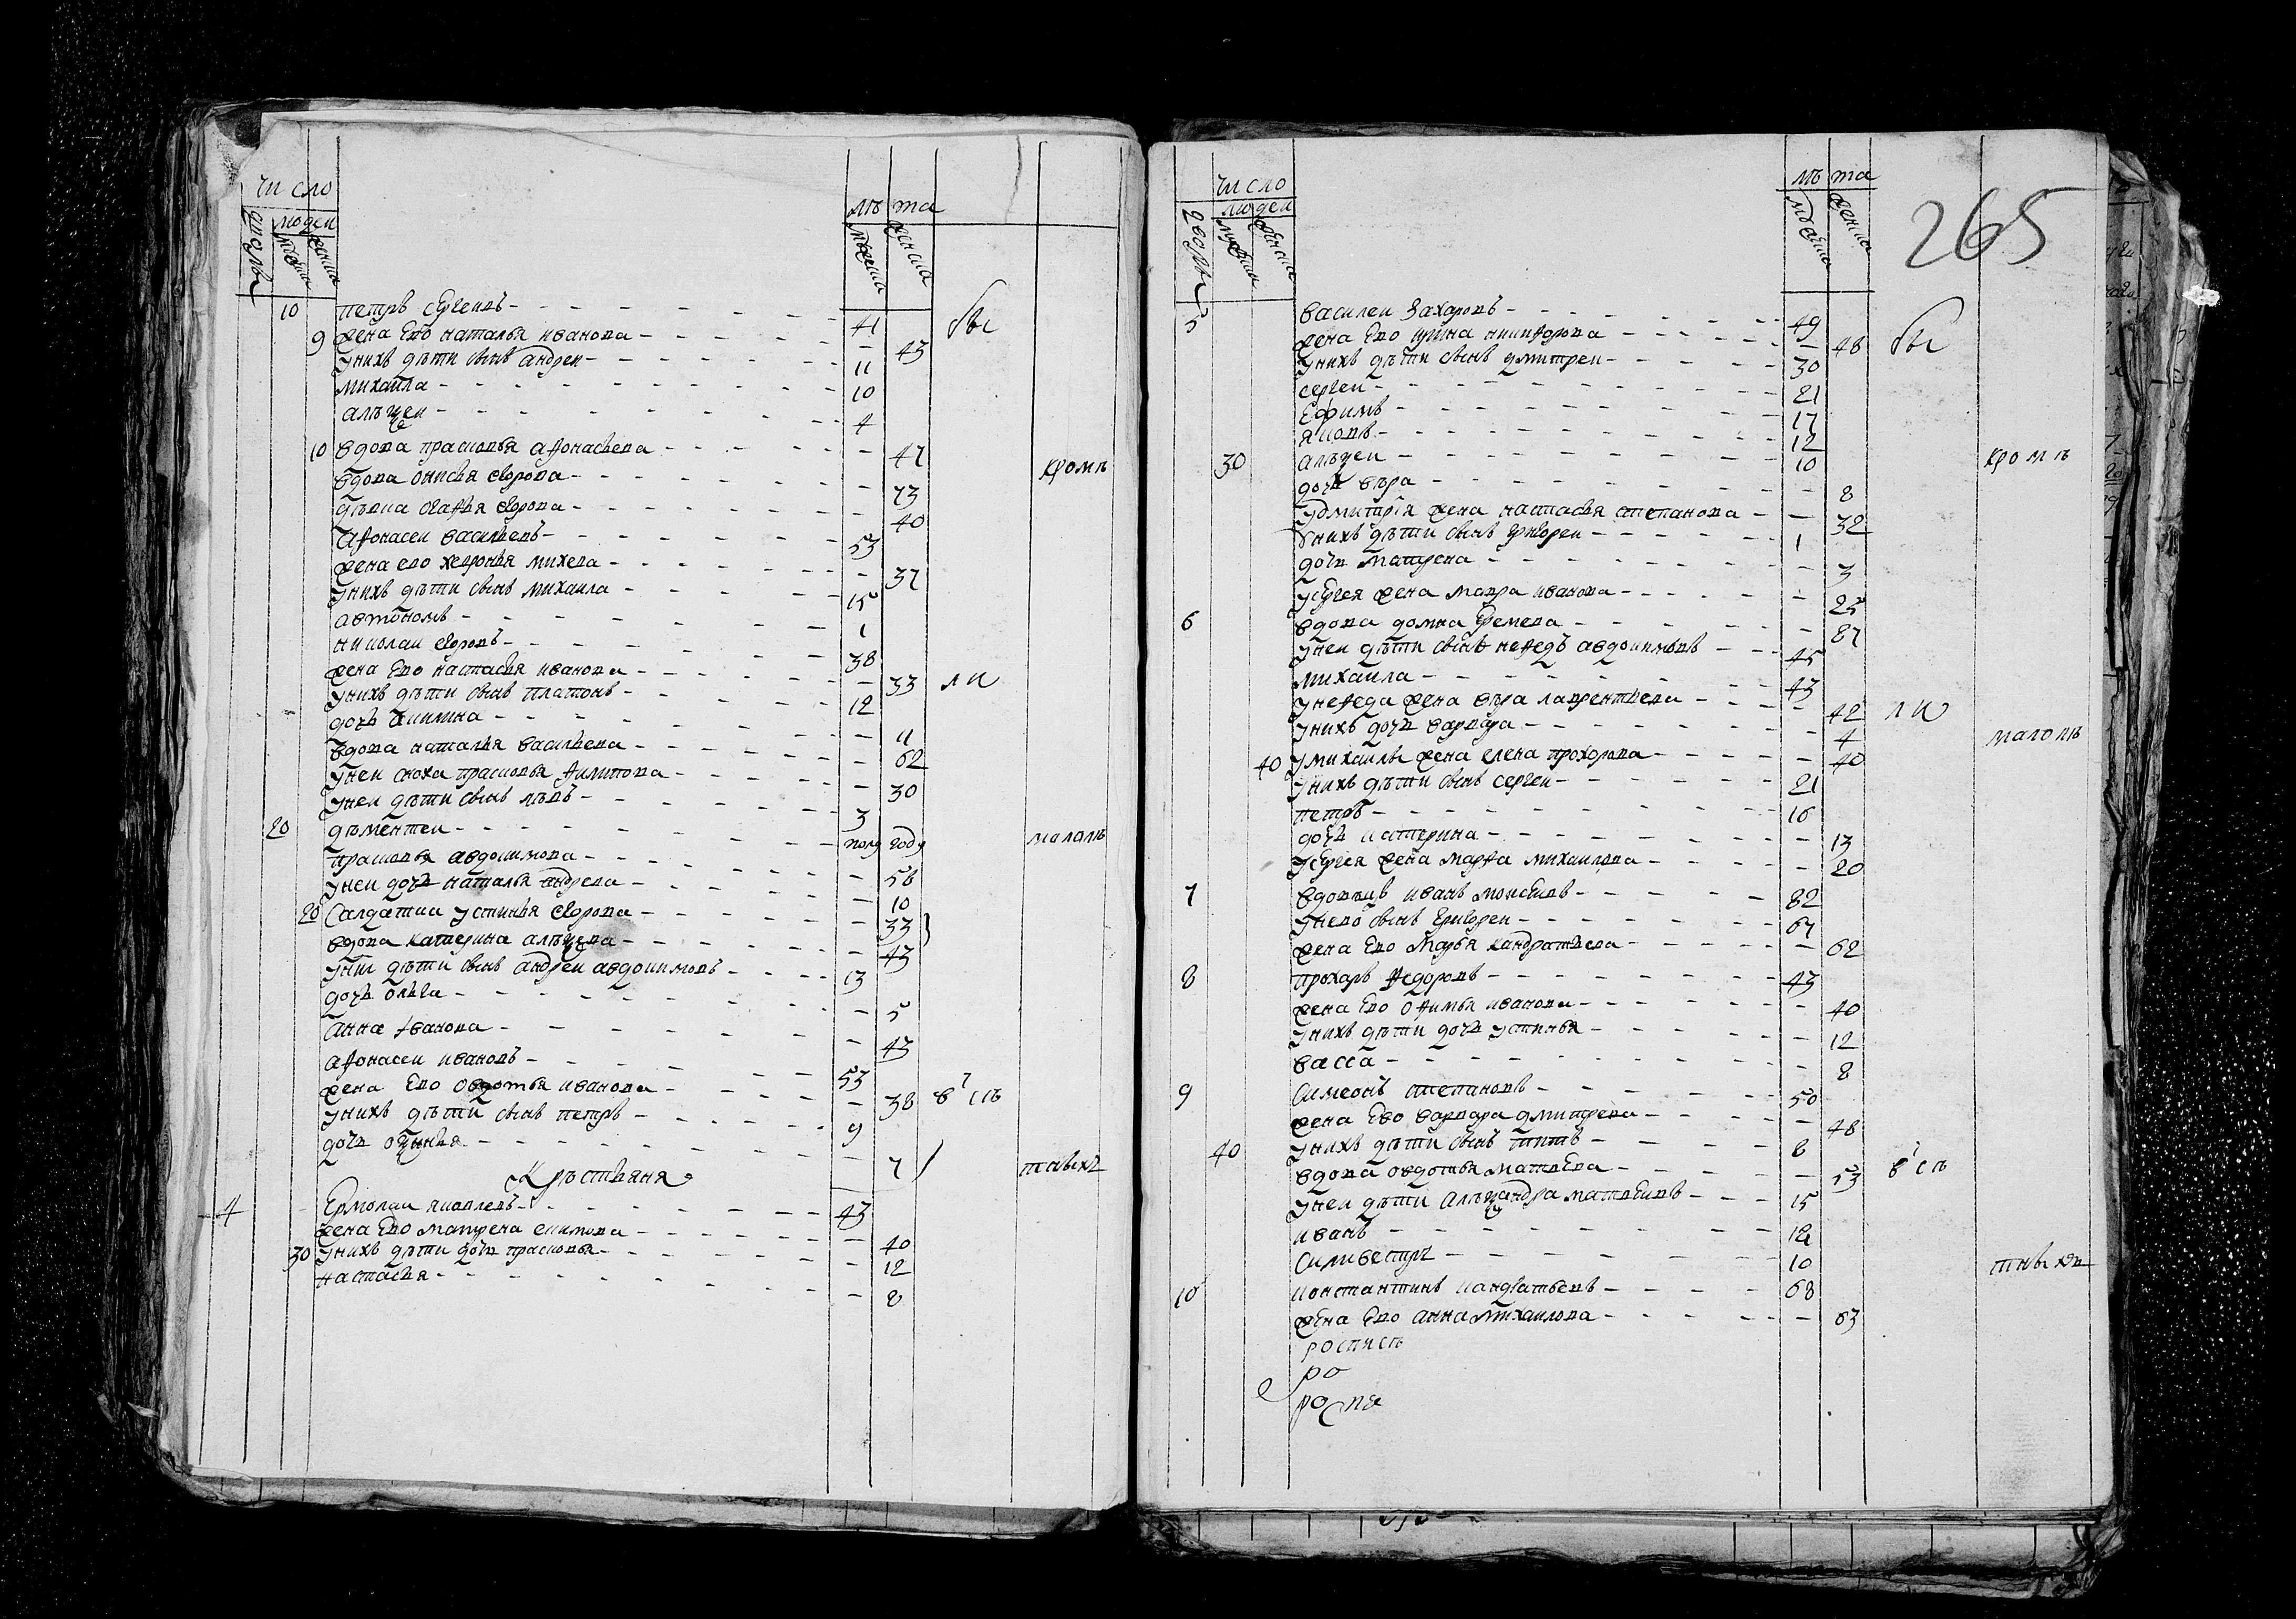 число
людей
дворы
мужеска
женска
лѣ та
мужеска
женска
10 петръ сергеевъ 41 бы
9 жена ево наталья иванова 43
у нихъ дѣти сынъ андреи 11
михаила 10
алѣѯеи 4
10 вдова прасковья афонасьева 47
вдова онисья егорова 73 кромѣ
дѣвка агафья егорова 40
афонасеи васильевъ 53
жена ево хевронья михеева 37
у нихъ дѣти сынъ михаила 15
автономъ 1
николаи егоровъ 38
жена ево настасья иванова 33 ли
у нихъ дѣти сынъ платонъ 12
дочь акилина 11
вдова наталья васильева 62
у неи сноха прасковья филипова 30
у неи дѣти сынъ лѣвъ 3
20 дѣментеи полу году малолѣ
прасковья авдокимова 58
у неи дочь наталья андреева 10
20 салдатка устинья егорова 33
вдова катерина алѣѯеева 43
у неи дѣти сынъ андреи авдокимовъ 13
дочь ольга 5
анна иванова 43
афонасеи ивановъ 53
жена ево овдотья иванова 38 в сѣ
у нихъ дѣти сынъ петръ 9
дочь 7 тныхъ
крѣстьяня
4 ермолаи яковлевъ 43
жена ево матрена екимова 40
30 у нихъ дѣти дочь прасковья 12
настасья 8
число
людей
дворы
мужеска
женска
лѣ та
мужеска
женска
265
5 василеи захаровъ 49
жена ево ирина никифорова 48 бы
у нихъ дѣти сынъ дмитреи 30
сергеи 21
ефимъ 17
яковъ 12
30 алѣѯеи 10 кромѣ
дочь вѣра 8
у дмитрія жена настасья степанова 32
у нихъ дѣти сынъ григореи 1
дочь матрена 3
у сергея жена мавра иванова 25
6 вдова домна еремеева 87
у неи дѣти сынъ нефедъ авдокимовъ 45
михаила 43
у нефеда жена вѣра лаврентьева 42 ли
у нихъ дочь варвара 4 малолѣ
40 у михаилы жена елена прохорова 40
у нихъ дѣти сынъ сергеи 21
петръ 16
дочь катерина 13
у сергея жена марфа михаилова 20
7 вдовецъ иванъ моисеевъ 82
у нево сынъ григореи 67
жена ево марья кандратьева 62
8 прохаръ федоровъ 43
жена ево офимья иванова 40
у нихъ дѣти дочь устинья 12
васса 8
9 симеонъ степановъ 50
жена ево варвара дмитреева 48
40 у нихъ дѣти сынъ титъ 8
вдова овдотья матвеева 53 в сѣ
у неи дѣти алѣѯандра матвеевъ 15
иванъ 12
силивестръ 10 тныхъ
10 константинъ кандратьевъ 68
жена ево анна михаилова 63
роспись
ро